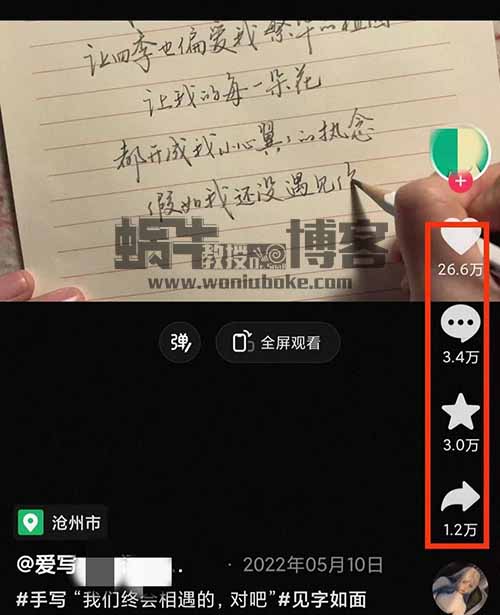 让四季也偏爱我繁华的祖国
让我的每一朵花
都开成我小心翼翼的执念
假如我还没遇见你
蜗牛教授博客
www.woniuboke.com
26.6万
3.4万
3.0万
1.2万
弹
全屏观看
沧州市
@爱写 · 2022年05月10日
#手写 “我们终会相遇的, 对吧”#见字如面